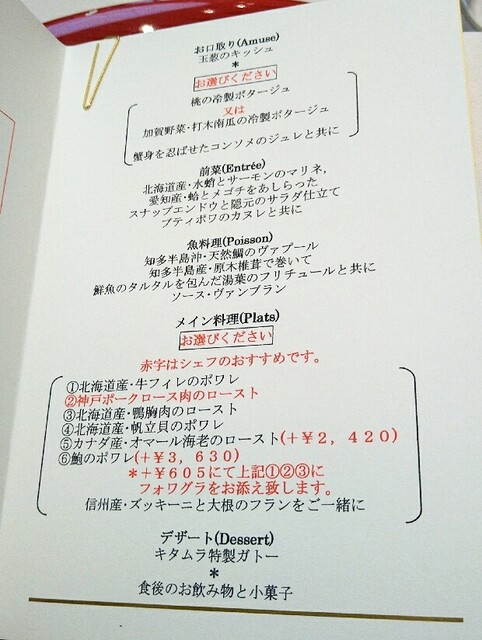 お口取り(Amuse)
玉葱のキッシュ
*
お選びください
桃の冷製ポタージュ
又は
加賀野菜・打木南瓜の冷製ポタージュ
蟹身を忍ばせたコンソメのジュレと共に
前菜(Entrée)
北海道産・水蛸とサーモンのマリネ,
愛知産・蛤とメゴチをあしらった
スナップエンドウと隠元のサラダ仕立て
プティポワのカヌレと共に
魚料理(Poisson)
知多半島沖・天然鯛のヴァプール
知多半島産・原木椎茸で巻いて
鮮魚のタルタルを包んだ湯葉のフリチュールと共に
ソース・ヴァンブラン
メイン料理(Plats)
お選びください
赤字はシェフのおすすめです。
①北海道産・牛フィレのポワレ
②神戸ポークロース肉のロースト
③北海道産・鴨胸肉のロースト
④北海道産・帆立貝のポワレ
⑤カナダ産・オマール海老のロースト(+¥2,420)
⑥鮑のポワレ(+¥3,630)
*+¥605にて上記①②③に
フォワグラをお添え致します。
信州産・ズッキーニと大根のフランをご一緒に
デザート(Dessert)
キタムラ特製ガトー
*
食後のお飲み物と小菓子